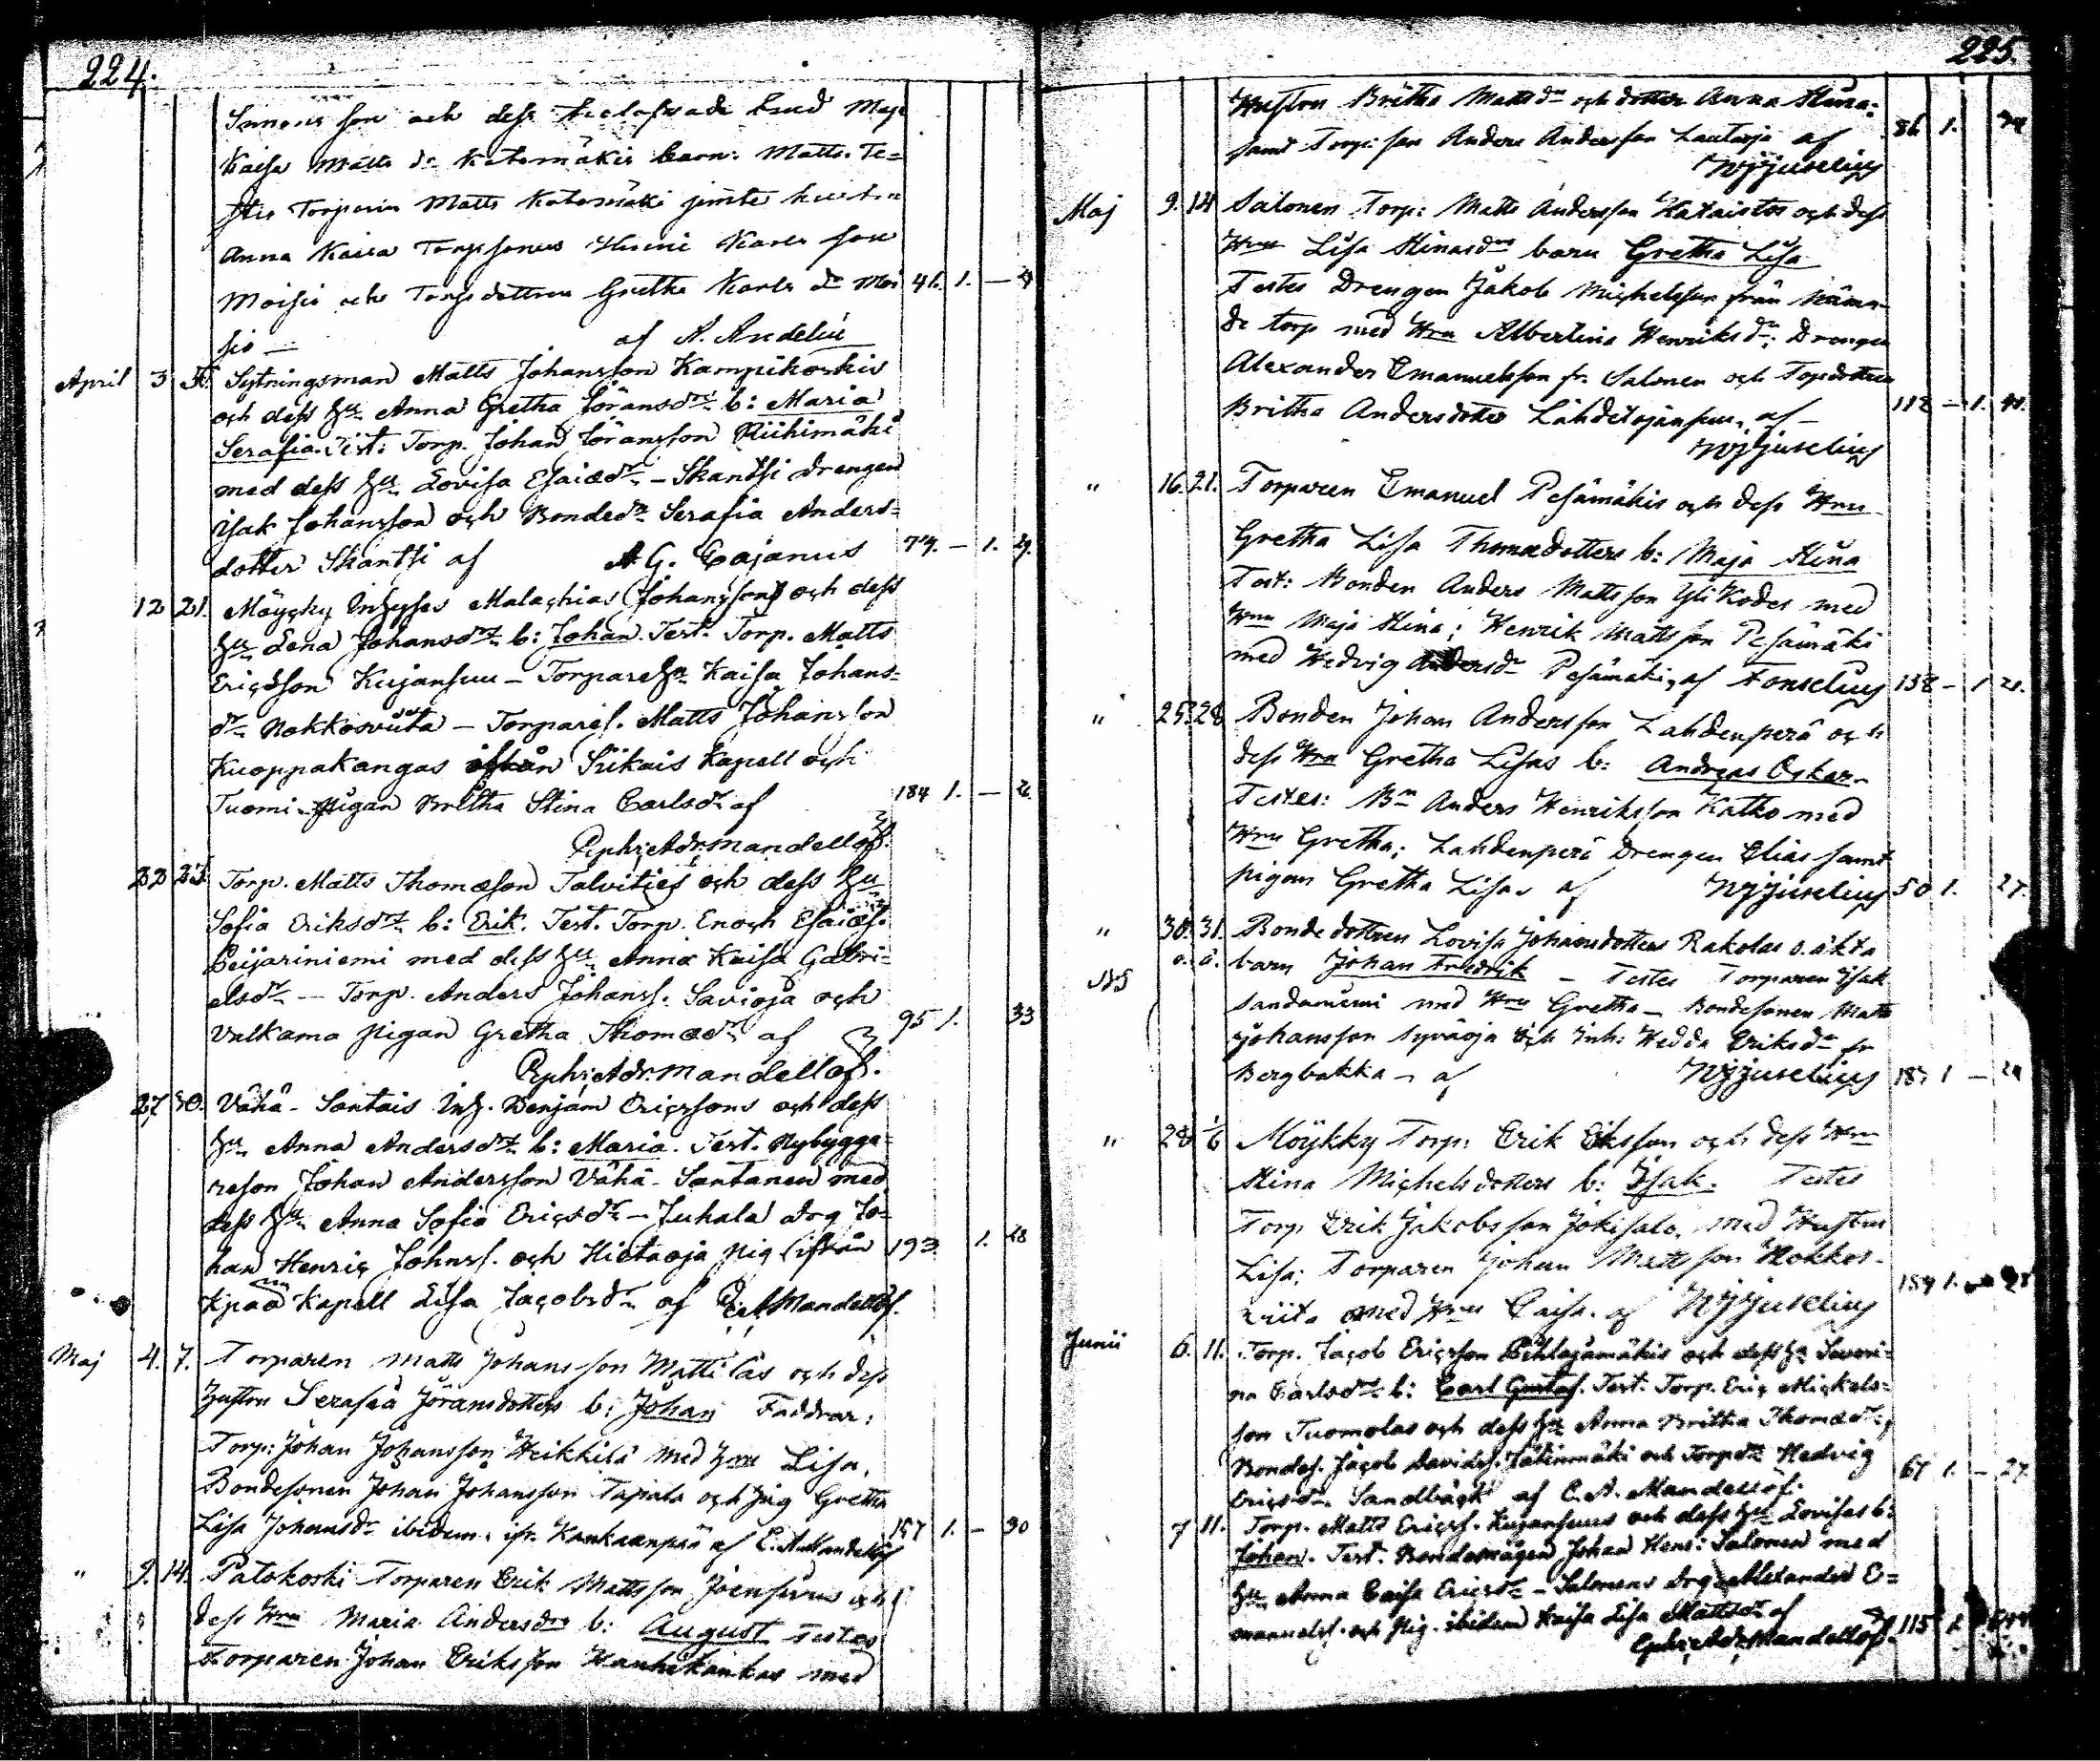 224.
Simons son och dess trolofvade brud Maja
Kaisa Matts dr Katomäkis barn: Matts. Te=
stes Torparen Matts Katomäki jemte hustrun
Anna Kaisa Torpsonen Karls son
Moisio och Torpdottren Gretha Karls dr Moi 46. 1. —
sio — af A. Andelin
April 3 Sytningsman Matts Johansson Kampikoskis
och dess Hu Anna Gretha Göransdrs b: Maria
Serafia. Test: Torp. Johan Göransson Riihimäki
med dess Hu Lovisa Esaiædr — Skantsi Drengen
Isak Johansson och Bondedr Serafia Anders=
dotter Skantsi af A. G. Cajanus 79. — 1.
12 21. Möycky Inhyses Malachias (Johansson) och dess
Hu Lena Johansdrs b: Johan. Test. Torp. Matts
Ericsson Kujansuu — Torpare Hu Kaisa Johans=
dr Nokkosviita — Torpares. Matts Johansson
Kuoppakangas ifrån Siikais Kapell och
Tuomi Pigan Britha Stina Carlsdr af 184 1. —
Ephr: Adr: Mandellöf.
22 25. Torp. Matts Thomæson Talvities och dess Hu
Sofia Eriksdrs b: Erik. Test. Torp. Enoch Esaiæs.
Beijariniemi med dess Hu Anna Kaisa Gabri=
elsdr — Torp. Anders Johanss. Savioja och
Valkama pigan Gretha Thomædr af 95 1. 33
Ephr: Adr: Mandellöf.
27 30. Vähä-Santais Inh. Benjam Ericssons och dess
Hu Anna Andersdrs b: Maria. Test. Nybygga=
reson Johan Andersson Vähä-Santanen med
dess Hu Anna Sofia Ericsdr — Juhala Drg Jo=
han Henric Johnss. och Hietaoja Pig ifrån 193. 1. 28
Kapell Lisa Jacobsdr af Mandellöf.
Maj 4. 7. Torparen Matts Johansson Mattilas och dess
Hustru Serafia Jöransdotters b: Johan Faddrar:
Torp: Johan Johansson Heikkilä med Hru Lisa,
Bondesonen Johan Johansson Tapiala och Pig Gretha
Lisa Johansdr ibidem, ifr. Kankaanpää af E. A. Mandellöf 157 1. — 30
" 9. 14. Patokoski Torparen Erik Mattsson Joensuus och
dess Hru Maria Andersdrs b: August Testes
Torparen Johan Eriksson Hanhikankas med
225.
Hustrun Britha Mattsdr och dotter Anna Stina:
samt Torpsson Anders Andersson Lautoja af 86 1.
WJJuselius
Maj 9. 14 Salonen Torp: Matts Andersson Kataistos och dess
Hrus Lisa Stinasdrs barn Gretha Lisa
Testes Drengen Jakob Michelsson från nämn-
de torp med Hru Albertina Henriksdr; Drengen
Alexander Emanuelsson fr. Salonen och Torpdottren
Britha Andersdotter Lähdetojansuu, af — 112 — 1.
WJJuselius
" 16. 21. Torparen Emanuel Pesämäkis och dess Hru
Gretha Lisa Thomædotters b: Maja Stina
Test: Bonden Anders Mattsson Yli Kodes med
Hru Maja Stina; Henrik Mattsson Pesämäki
med Hedvig Andersdr Pesämäki, af Fonselius 138 — 1 21.
" 25. 28. Bonden Johan Andersson Lahdenperä och
dess Hru Gretha Lisas b: Andreas Oskar.
Testes: Bn Anders Henriksson Katko med
Hru Gretha; Lahdenperä Drengen Elias samt
pigan Gretha Lisas af WJJuselius 50 1. 27.
" 30. 31. Bondedottren Lovisa Johansdotters Rakolas o. äkta
o. ä. barn Johan Fredrik — Testes Torparen Isak
Sandaniemi med Hru Gretha — Bondesonen Matts
Johansson Syväoja och Inh: Hedda Eriksdr fr
Bergbakka — af WJJuselius 187 1 —
" 28 1/6 Möykky Torp: Erik Eriksson och dess Hru
Stina Michelsdotters b: Isak. Testes
Torp Erik Jakobsson Jokisalo, med Hustru
Lisa; Torparen Johan Mattsson Nokkos-
viita med Hru Caisa. af WJJuselius 184 1. —
Junii 6. 11. Torp. Jacob Ericsson Pihlajamäkis och dess Hu Severi=
na Carlsdrs b: Carl Gustaf. Test. Torp. Eric Mickels=
son Tuomolas och dess Hu Anna Britha Thomædr;
Bondes. Jacob Davidss. Jätinmäki och Torpdr Hedvig
Ericsdr Sandbäck af E. A. Mandellöf. 67 1. — 27.
7 11. Torp. Matts Ericss. Kujansuus och dess Hu Lovisas b:
Johan. Test. Bondemågen Johan Henr: Salonen med
Hu Anna Caisa Ericsdr — Salonens Drg Alexander E=
manuelss. och Pig. ibidem Kaisa Lisa Mattsdr af 115 1.
Ephr: Adr: Mandellöf.